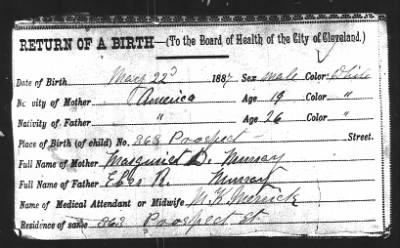 RETURN OF A BIRTH—(To the Board of Health of the City of Cleveland.)
Date of Birth May 22d 188 Sex male Color White
Nativity of Mother America Age 19 Color "
Nativity of Father " Age 26 Color "
Place of Birth (of child) No. 868 Prospect Street.
Full Name of Mother Marguriet D. Murray
Full Name of Father Eben R. Murray
Name of Medical Attendant or Midwife N. K. Merrick
Residence of same 863 Prospect St